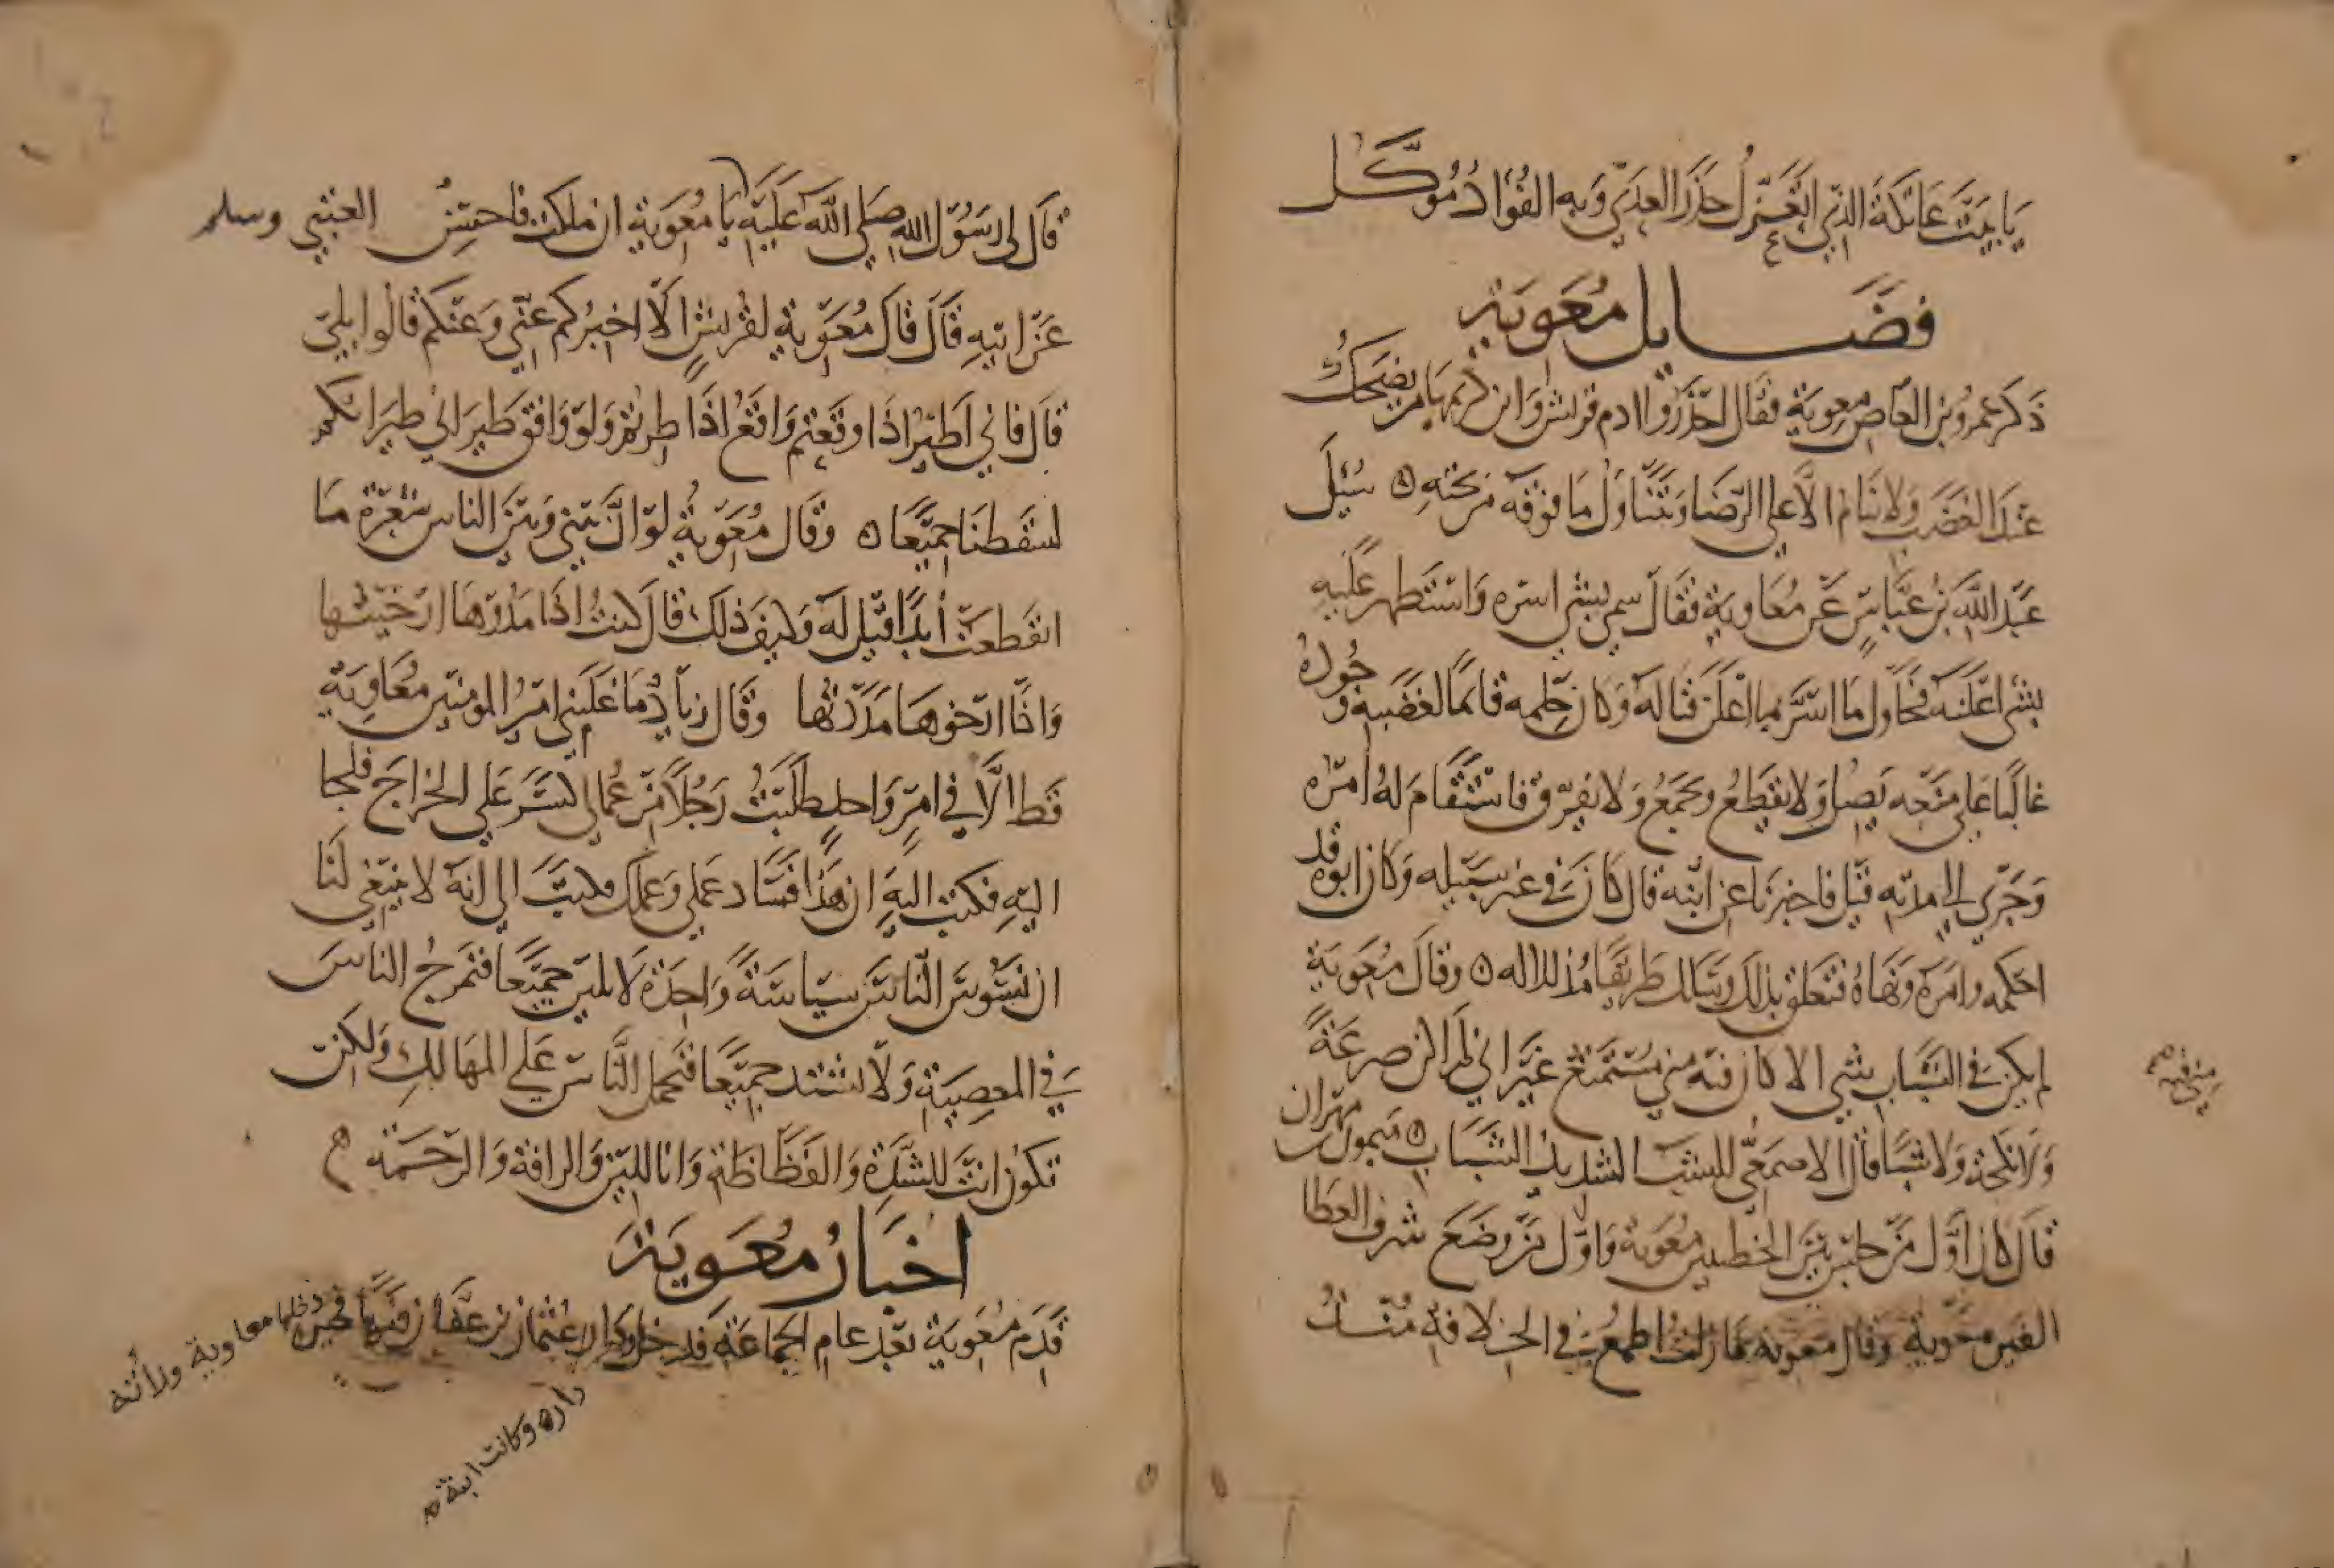 يا بيت عاتكة الذي اتعزل حذر العدي وبه الفؤاد موكل
فضايل معوية
ذكر عمرو بن العاص معوية فقال احذروا ادم قريش وابن كريمها من يضحك
عند الغضب ولا ينام الا علي الرضا ويتناول ما فوقه من تحته ٥ سئيل
عبد الله بن عباس عن معاوية فقال سما بشي اسره واستظهر عليه
بشي اعلنه فحاول ما اسر بما اعلن فناله وكان حلمه قاهرا لغضبه وجوده
غالبا علي منعه يصل ولا يقطع ويجمع ولا يفرق فاستقام له امره
وجري الي مدته قيل فاخبرنا عن ابنه قال كان في غير سبيله وكان ابوه قد
احكمه وامره ونهاه فتعلق بذلك وسلك طريقا مذللا له ٥ وقال معوية
لم يكن في الشباب شي الا كان فيه مني مستمتع غير اني لم اكن صرعة
ولا نكحة ولا سبا قال الاصمعي السب الشديد السباب ٥ ميمون بن مهران
قال كان اول من جلس بين الخطبتين معوية واول من وضع شرف العطا
الفين معوية وقال معوية ما زلت اطمع في الخلافة منذ
قال لي رسول الله صلي الله عليه يا معوية ان ملكت فاحسن العتبي وسلم
عن ابيه قال قال معوية لقريش الا اخبركم عني وعنكم قالوا بلي
قال فاني اطير اذا وقعتم واقع اذا طرتم ولو وافق طيراني طيرانكم
لسقطنا جميعا ٥ وقال معوية لو ان بيني وبين الناس شعرة ما
انقطعت ابدا قيل له وكيف ذلك قال كنت اذا مدوها ارخيتها
واذا ارخوها مددتها وقال زياد ما غلبني امير المومنين معاوية
قط الا في امر واحد طلبت رجلا من عمالي كسر علي الخراج فلجا
اليه فكتبت اليه ان هذا فساد عملي وعملك فكتب الي انه لا ينبغي لنا
ان نسوس الناس سياسة واحدة لا نلين جميعا فتمرج الناس
في المعصية ولا نشتد جميعا فنحمل الناس علي المهالك ولكن
تكون انت للشدة والفظاظة وانا للين والرافة والرحمة
اخبار معوية
قدم معوية بعد عام الجماعة فدخل دار عثمان بن عفان
دخلها معاوية ولاته
داره وكانت ابنة